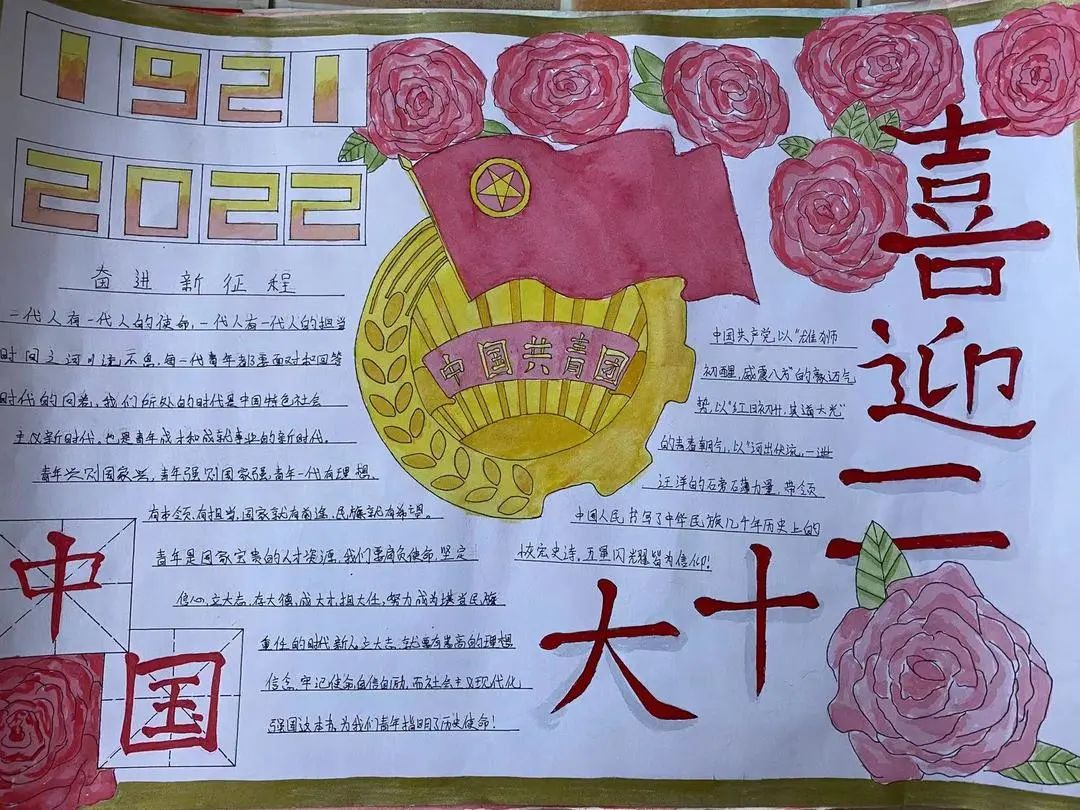 1921
2022
奋进新征程
一代人有一代人的使命,一代人有一代人的担当
时间之河川流不息,每一代青年都要面对和回答
时代的问卷,我们所处的时代是中国特色社会
主义新时代,也是青年成才和成就事业的新时代。
青年兴则国家兴,青年强则国家强,青年一代有理想、
有本领、有担当,国家就有前途,民族就有希望。
青年是国家宝贵的人才资源,我们要肩负使命,坚定
信心,立大志,存大德,成大才,担大任,努力成为堪当民族
重任的时代新人,立大志,就要有崇高的理想
信念,牢记使命,自信自励,而社会主义现代化
强国这本身为我们青年指明了历史使命!
中国
中国共青团
中国共产党,以“雄狮
初醒,威震八方”的豪迈气
势,以“红日初升,其道大光”
的青春朝气,以“河出伏流,一泄
汪洋”的磅礴力量,带领
中国人民书写了中华民族几千年历史上的
恢宏史诗,五星闪耀皆为信仰!
喜迎二十大